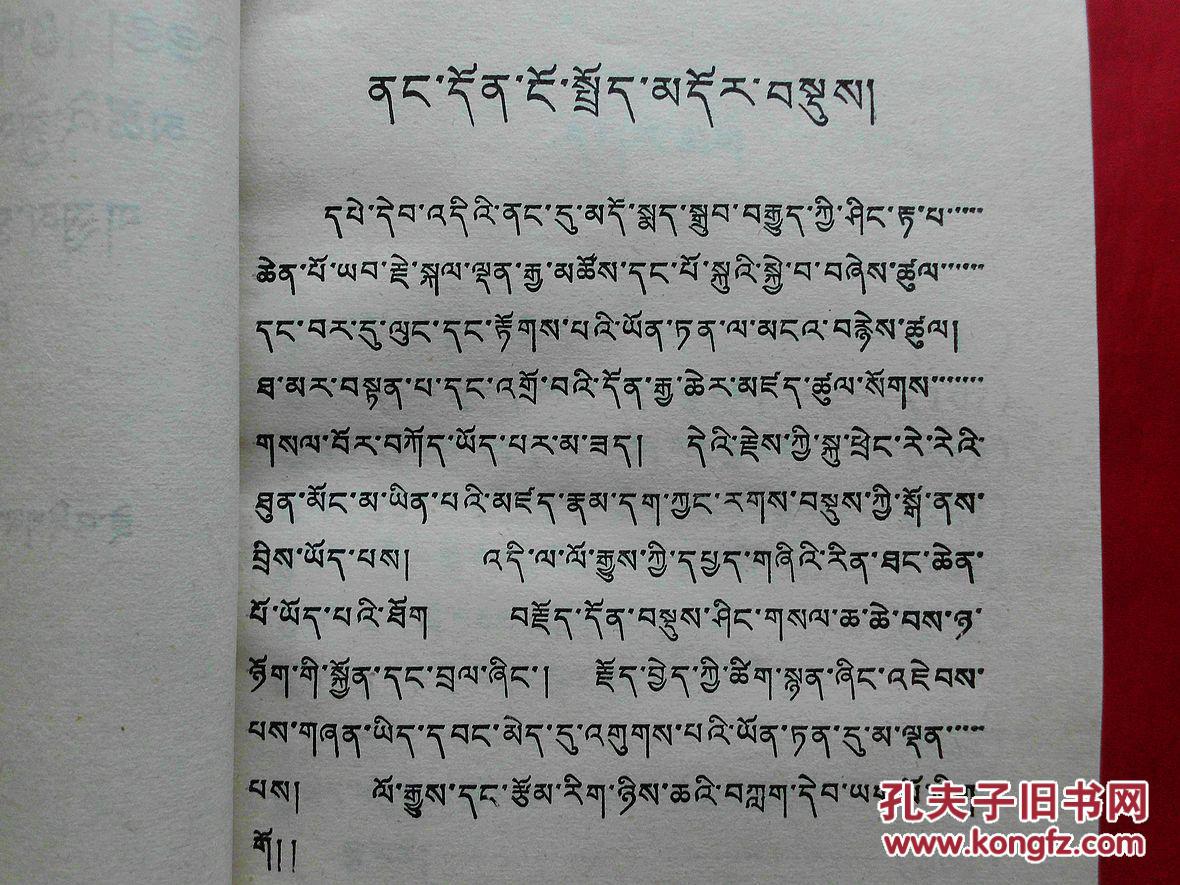 ནང་དོན་ངོ་སྤྲོད་མདོར་བསྡུས།
དཔེ་དེབ་འདིའི་ནང་དུ་མདོ་སྨད་སྒྲུབ་བརྒྱུད་ཀྱི་ཤིང་རྟ་པ་་་་་་
ཆེན་པོ་ཡབ་རྗེ་སྐལ་ལྡན་རྒྱ་མཚོས་དང་པོ་སྐུའི་སྐྱེ་བ་བཞེས་ཚུལ་་་་་་་
དང་བར་དུ་ལུང་དང་རྟོགས་པའི་ཡོན་ཏན་ལ་མངའ་བརྙེས་ཚུལ།
ཐ་མར་བསྟན་པ་དང་འགྲོ་བའི་དོན་རྒྱ་ཆེར་མཛད་ཚུལ་སོགས་་་་་་་་
གསལ་བོར་བཀོད་ཡོད་པར་མ་ཟད། དེའི་རྗེས་ཀྱི་སྐུ་ཕྲེང་རེ་རེའི་
ཐུན་མོང་མ་ཡིན་པའི་མཛད་རྣམ་དག་ཀྱང་རགས་བསྡུས་ཀྱི་སྒོ་ནས་
བྲིས་ཡོད་པས། འདི་ལ་ལོ་རྒྱུས་ཀྱི་དཔྱད་གཞིའི་རིན་ཐང་ཆེན་
པོ་ཡོད་པའི་ཐོག བརྗོད་དོན་བསྡུས་ཤིང་གསལ་ཆ་ཆེ་བས་ཉ་
ཉོག་གི་སྐྱོན་དང་བྲལ་ཞིང་། རྗོད་བྱེད་ཀྱི་ཚིག་སྙན་ཞིང་འཇེབས་
པས་གཞན་ཡིད་དབང་མེད་དུ་འགུགས་པའི་ཡོན་ཏན་དུ་མ་ལྡན་་་་་་
པས། ལོ་རྒྱུས་དང་རྩོམ་རིག་ཉིས་ཆའི་བཀླག་དེབ་
གོ།།
孔夫子旧书网
www.kongfz.com